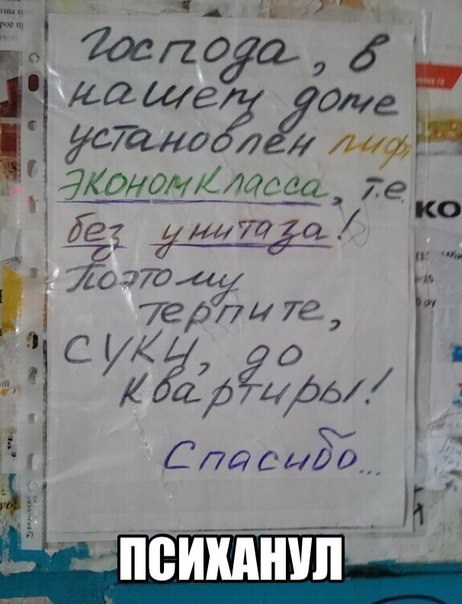 Господа, в
нашем доме
установлен лифт
экономкласса, т.е.
без унитаза!
Поэтому
терпите,
суки, до
квартиры!
Спасибо...
КО
ПСИХАНУЛ